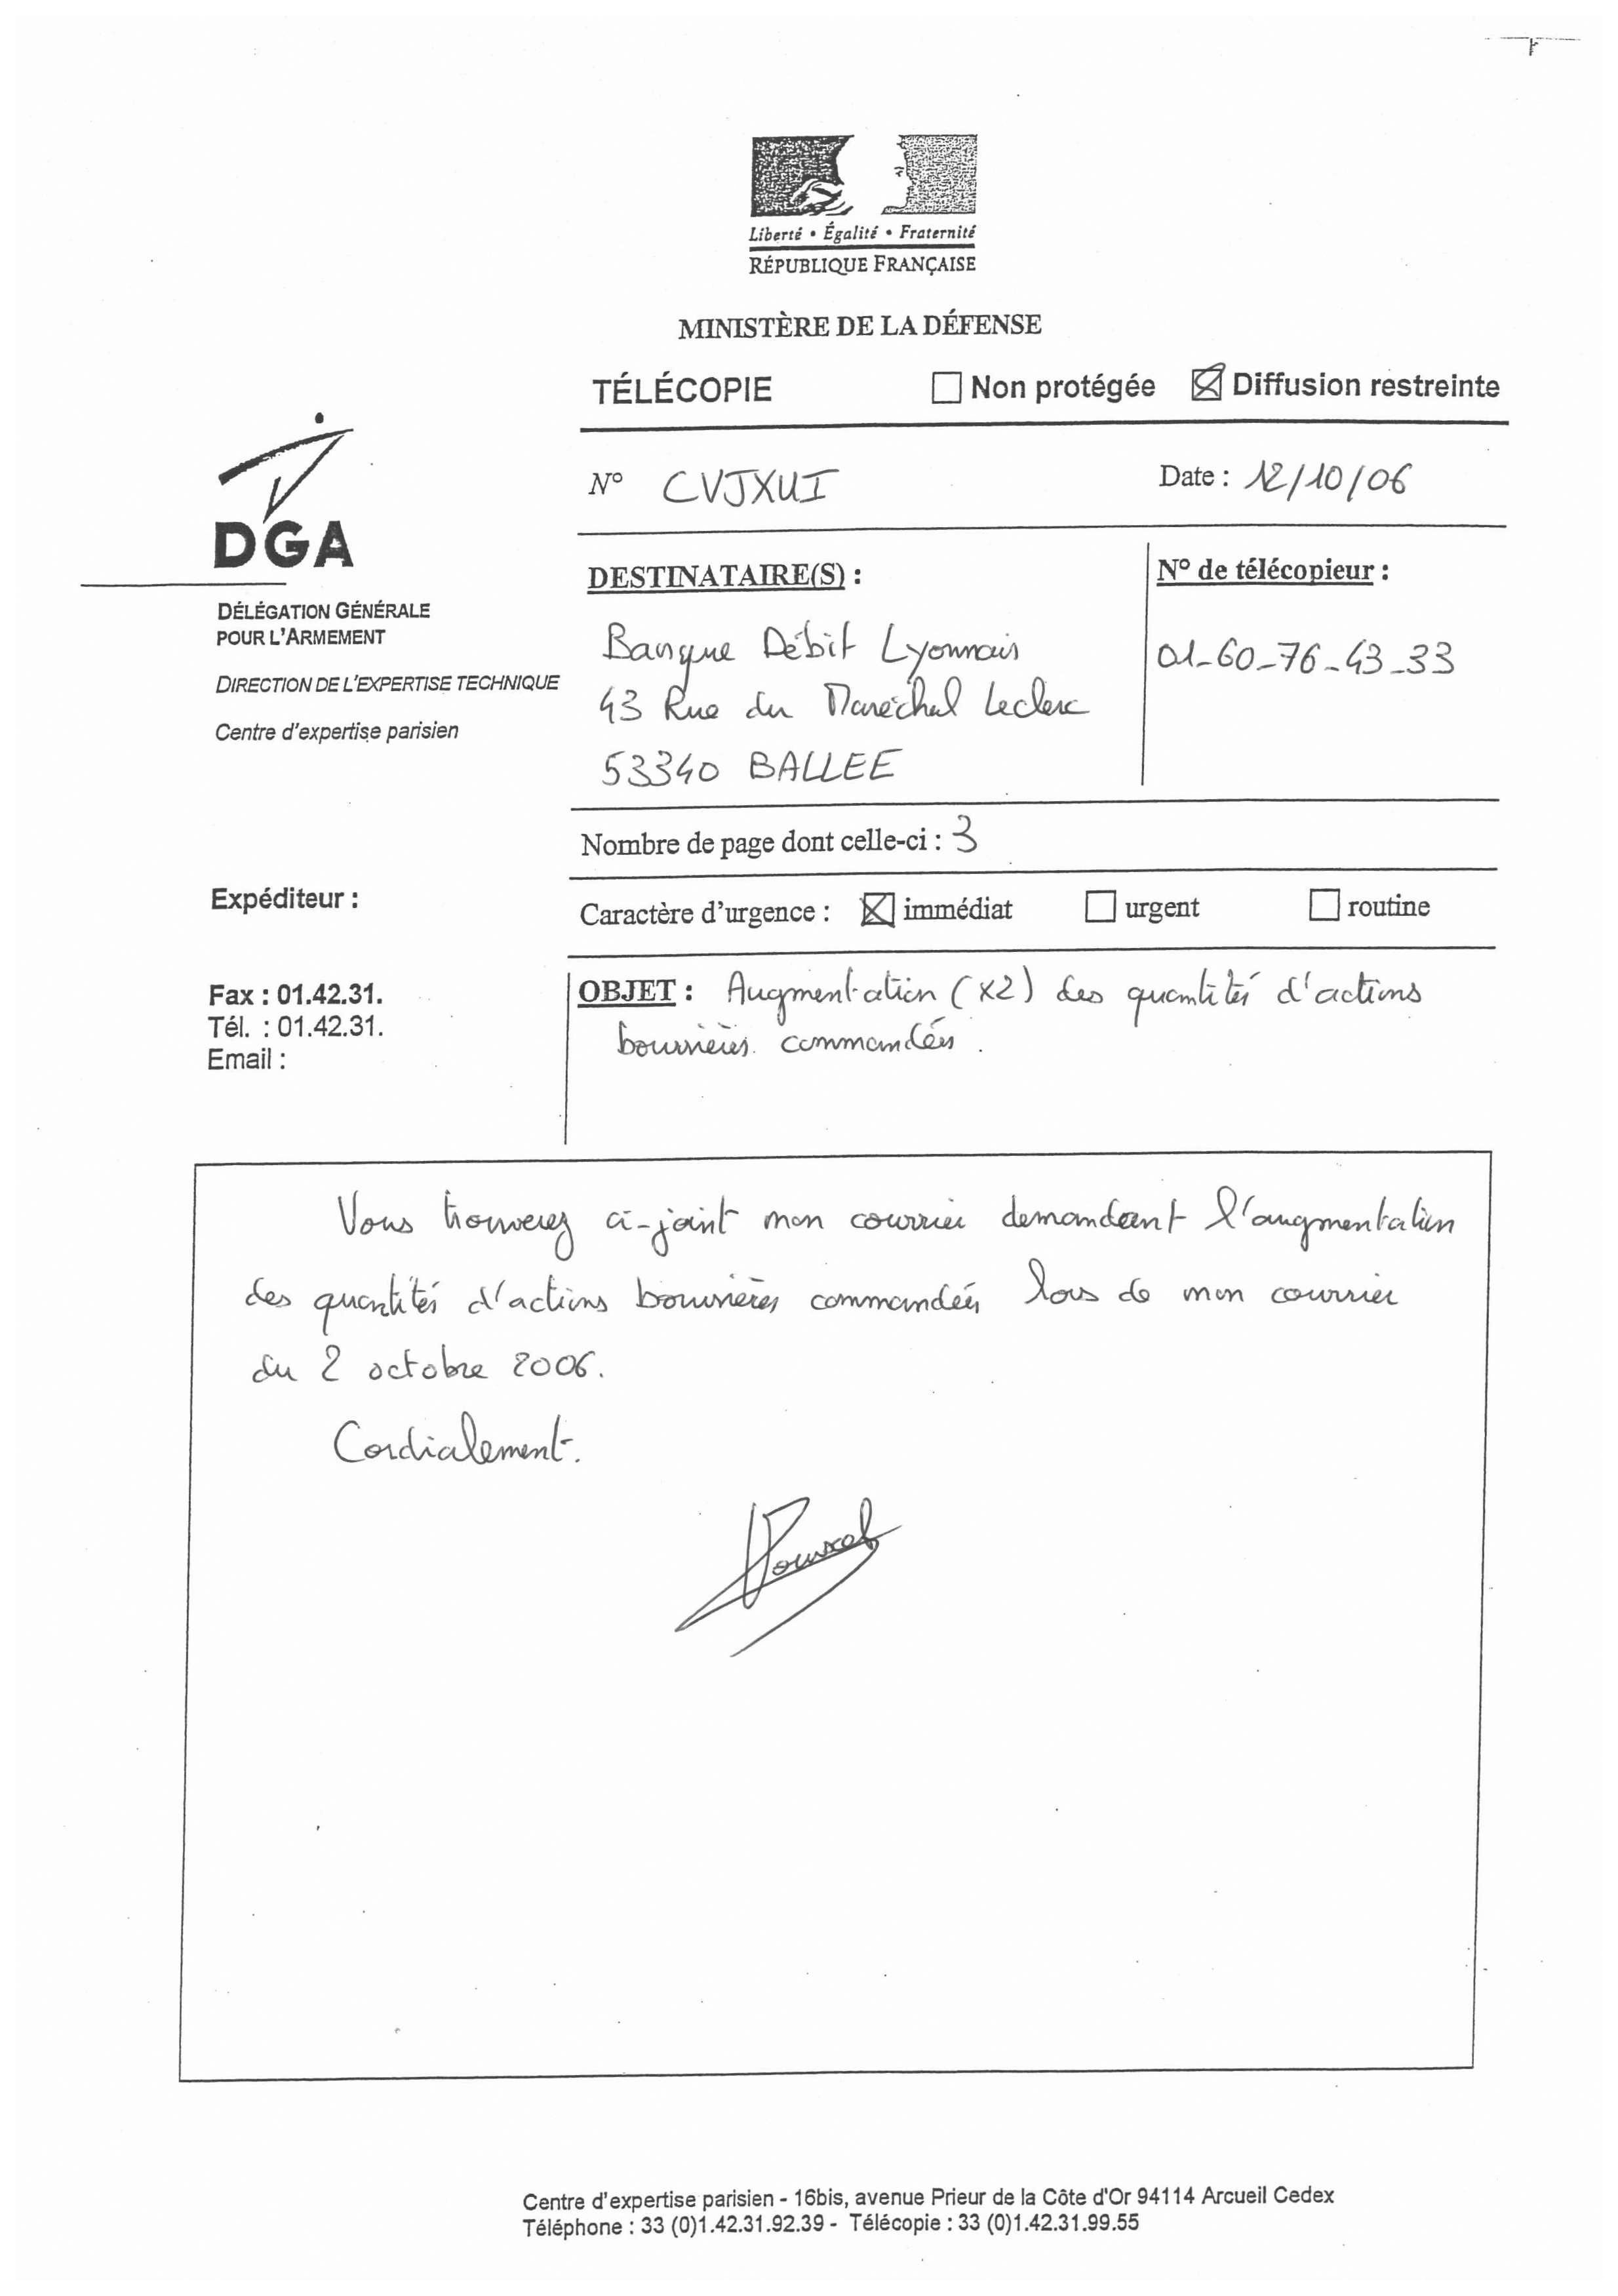 Liberté • Égalité • Fraternité
RÉPUBLIQUE FRANÇAISE
MINISTÈRE DE LA DÉFENSE
TÉLÉCOPIE ☐ Non protégée ☒ Diffusion restreinte
N° CVJXUI Date : 12/10/06
DGA
DÉLÉGATION GÉNÉRALE
POUR L'ARMEMENT
DIRECTION DE L'EXPERTISE TECHNIQUE
Centre d'expertise parisien
DESTINATAIRE(S) :
Banque Débit Lyonnais
43 Rue du Maréchal Leclerc
53340 BALLEE
N° de télécopieur :
01-60-76-43-33
Nombre de page dont celle-ci : 3
Expéditeur :
Caractère d'urgence : ☒ immédiat ☐ urgent ☐ routine
Fax : 01.42.31.
Tél. : 01.42.31.
Email :
OBJET : Augmentation (x2) des quantités d'actions
boursières commandées.
Vous trouverez ci-joint mon courrier demandant l'augmentation
des quantités d'actions boursières commandées lors de mon courrier
du 2 octobre 2006.
Cordialement.
Centre d'expertise parisien - 16bis, avenue Prieur de la Côte d'Or 94114 Arcueil Cedex
Téléphone : 33 (0)1.42.31.92.39 - Télécopie : 33 (0)1.42.31.99.55